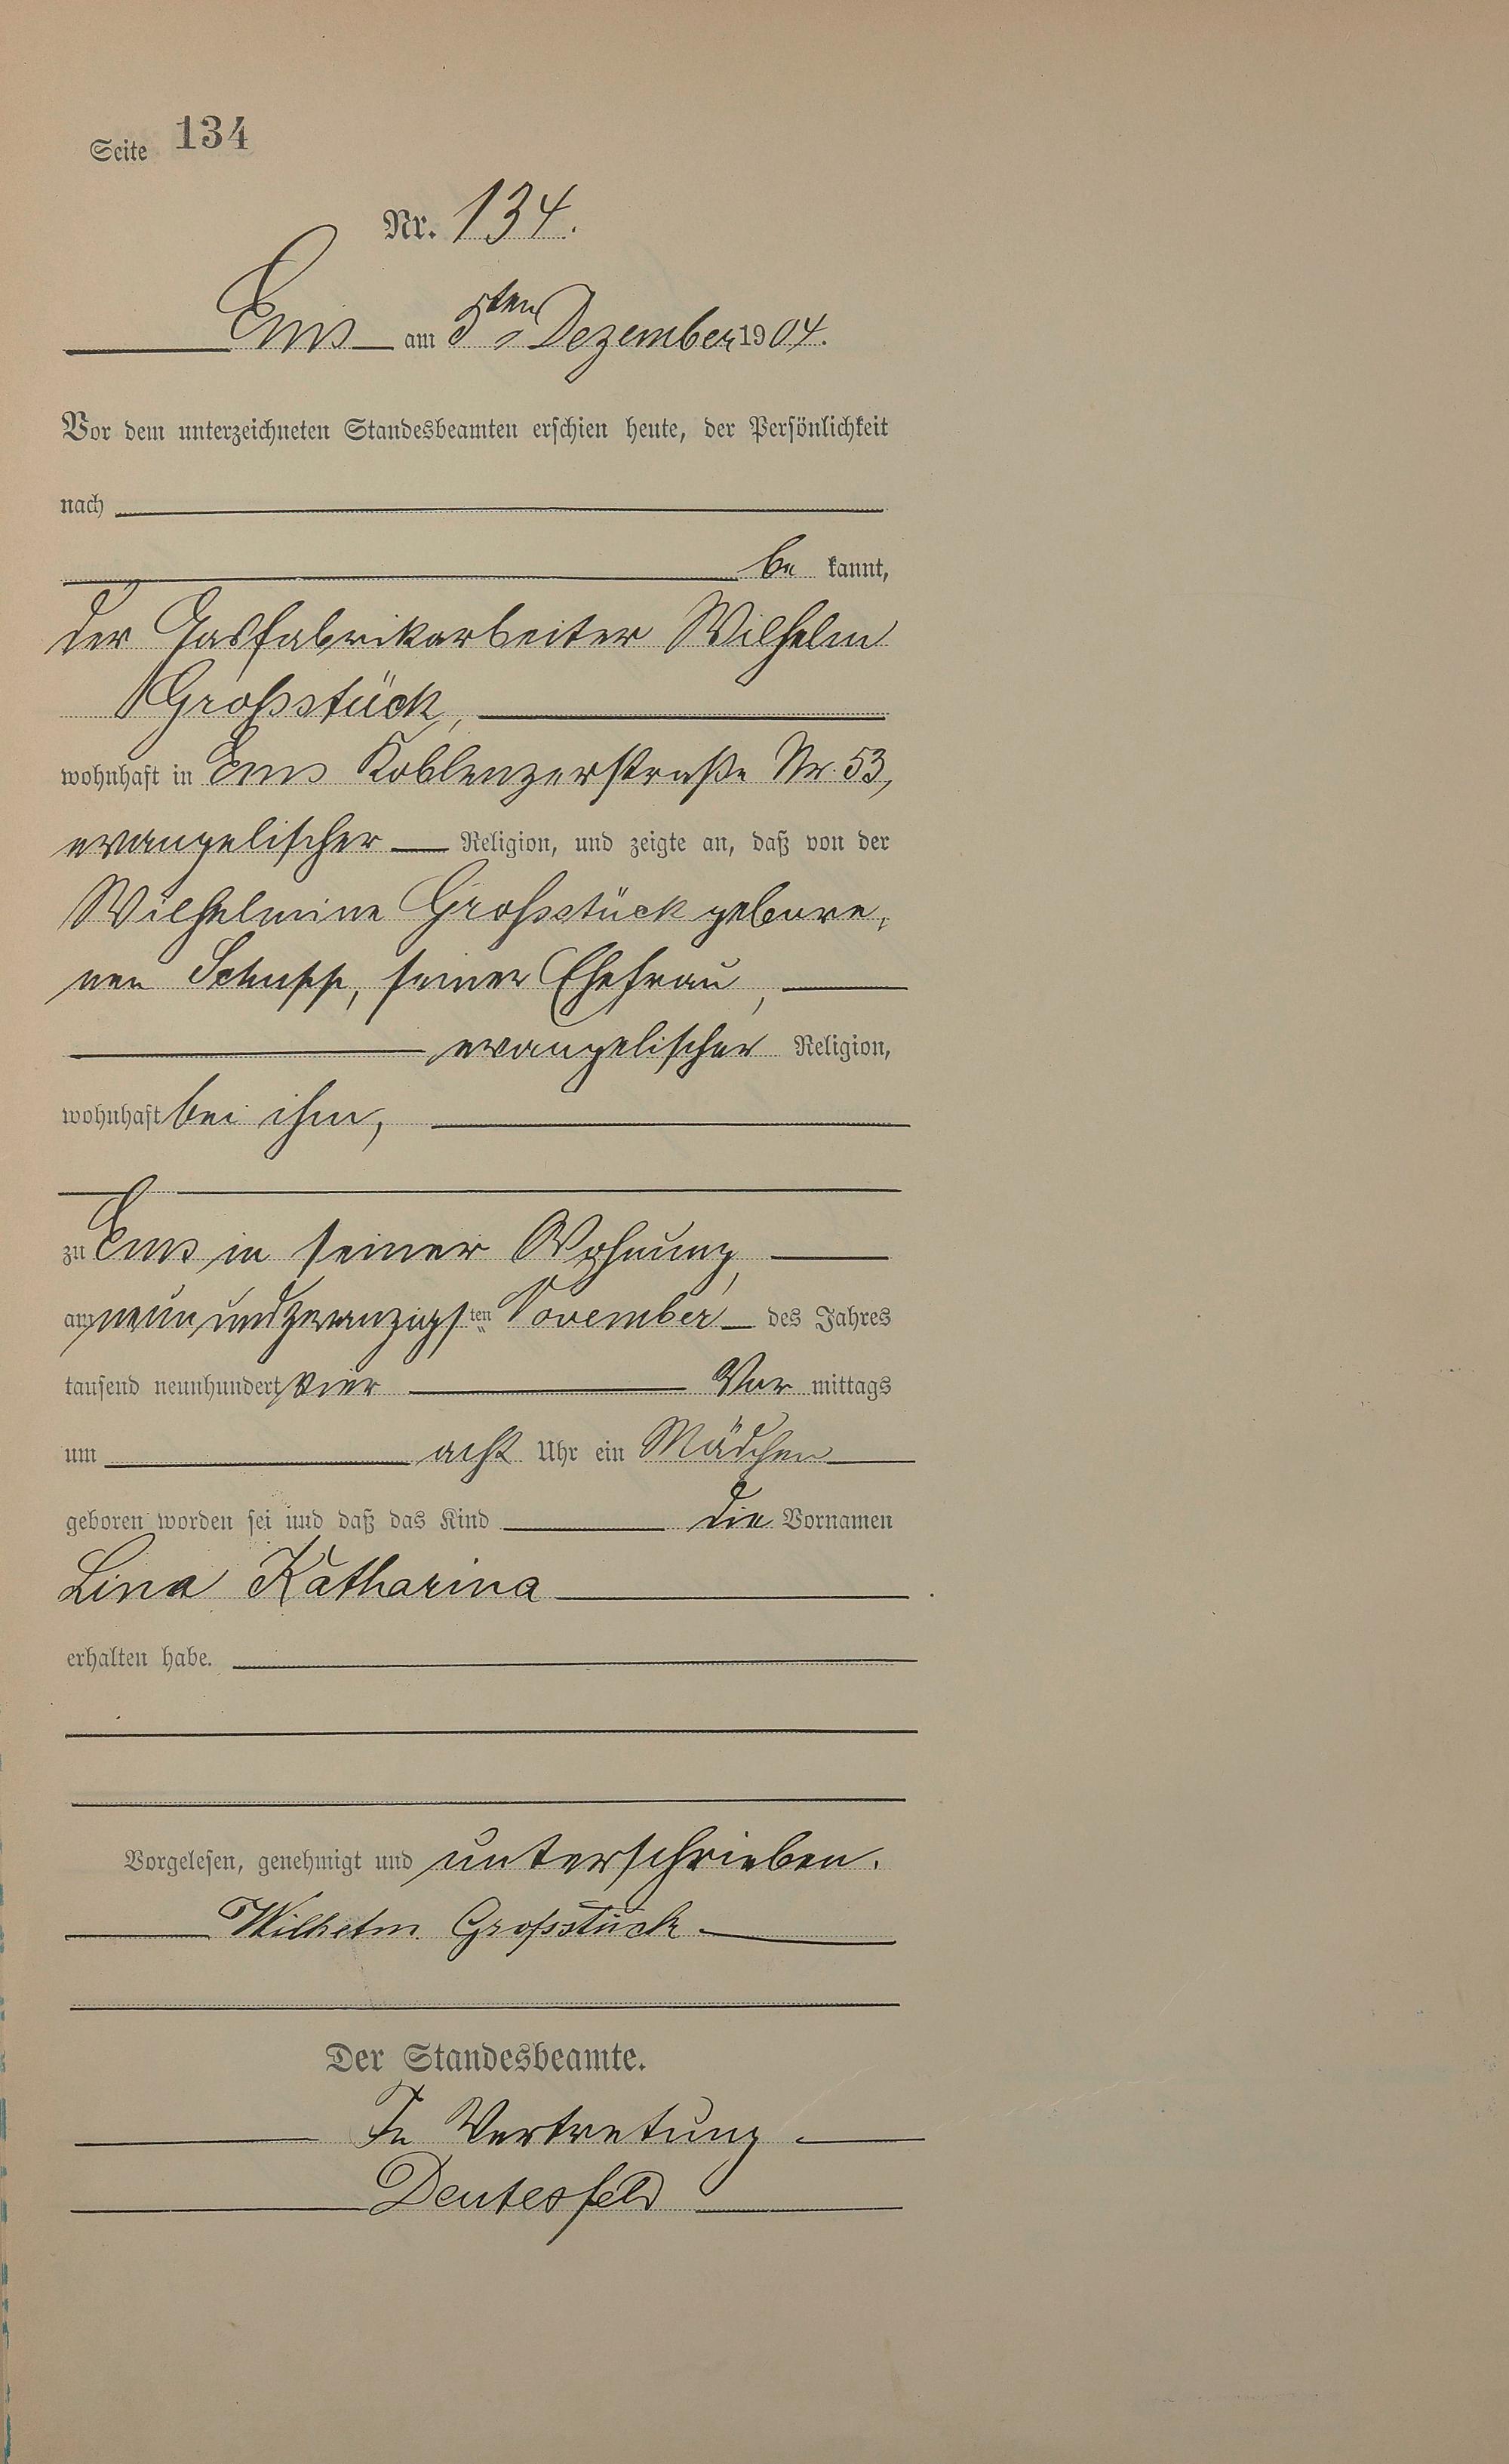 Seite 134
Nr. 134.
Ems am 5ten Dezember 1904.
Vor dem unterzeichneten Standesbeamten erschien heute, der Persönlichkeit
nach
be kannt,
der Gasfabrikarbeiter Wilhelm
Großstück,
wohnhaft in Ems Koblenzerstraße Nr. 53,
evangelischer Religion, und zeigte an, daß von der
Wilhelmine Großstück gebore-
nen Schupp, seiner Ehefrau,
evangelischer Religion,
wohnhaft bei ihm,
zu Ems in seiner Wohnung,
am neunundzwanzigsten November des Jahres
tausend neunhundert vier Vor mittags
um acht Uhr ein Mädchen
geboren worden sei und daß das Kind die Vornamen
Lina Katharina
erhalten habe.
Vorgelesen, genehmigt und unterschrieben.
Wilhelm Großstück
Der Standesbeamte.
In Vertretung
Deutesfeld